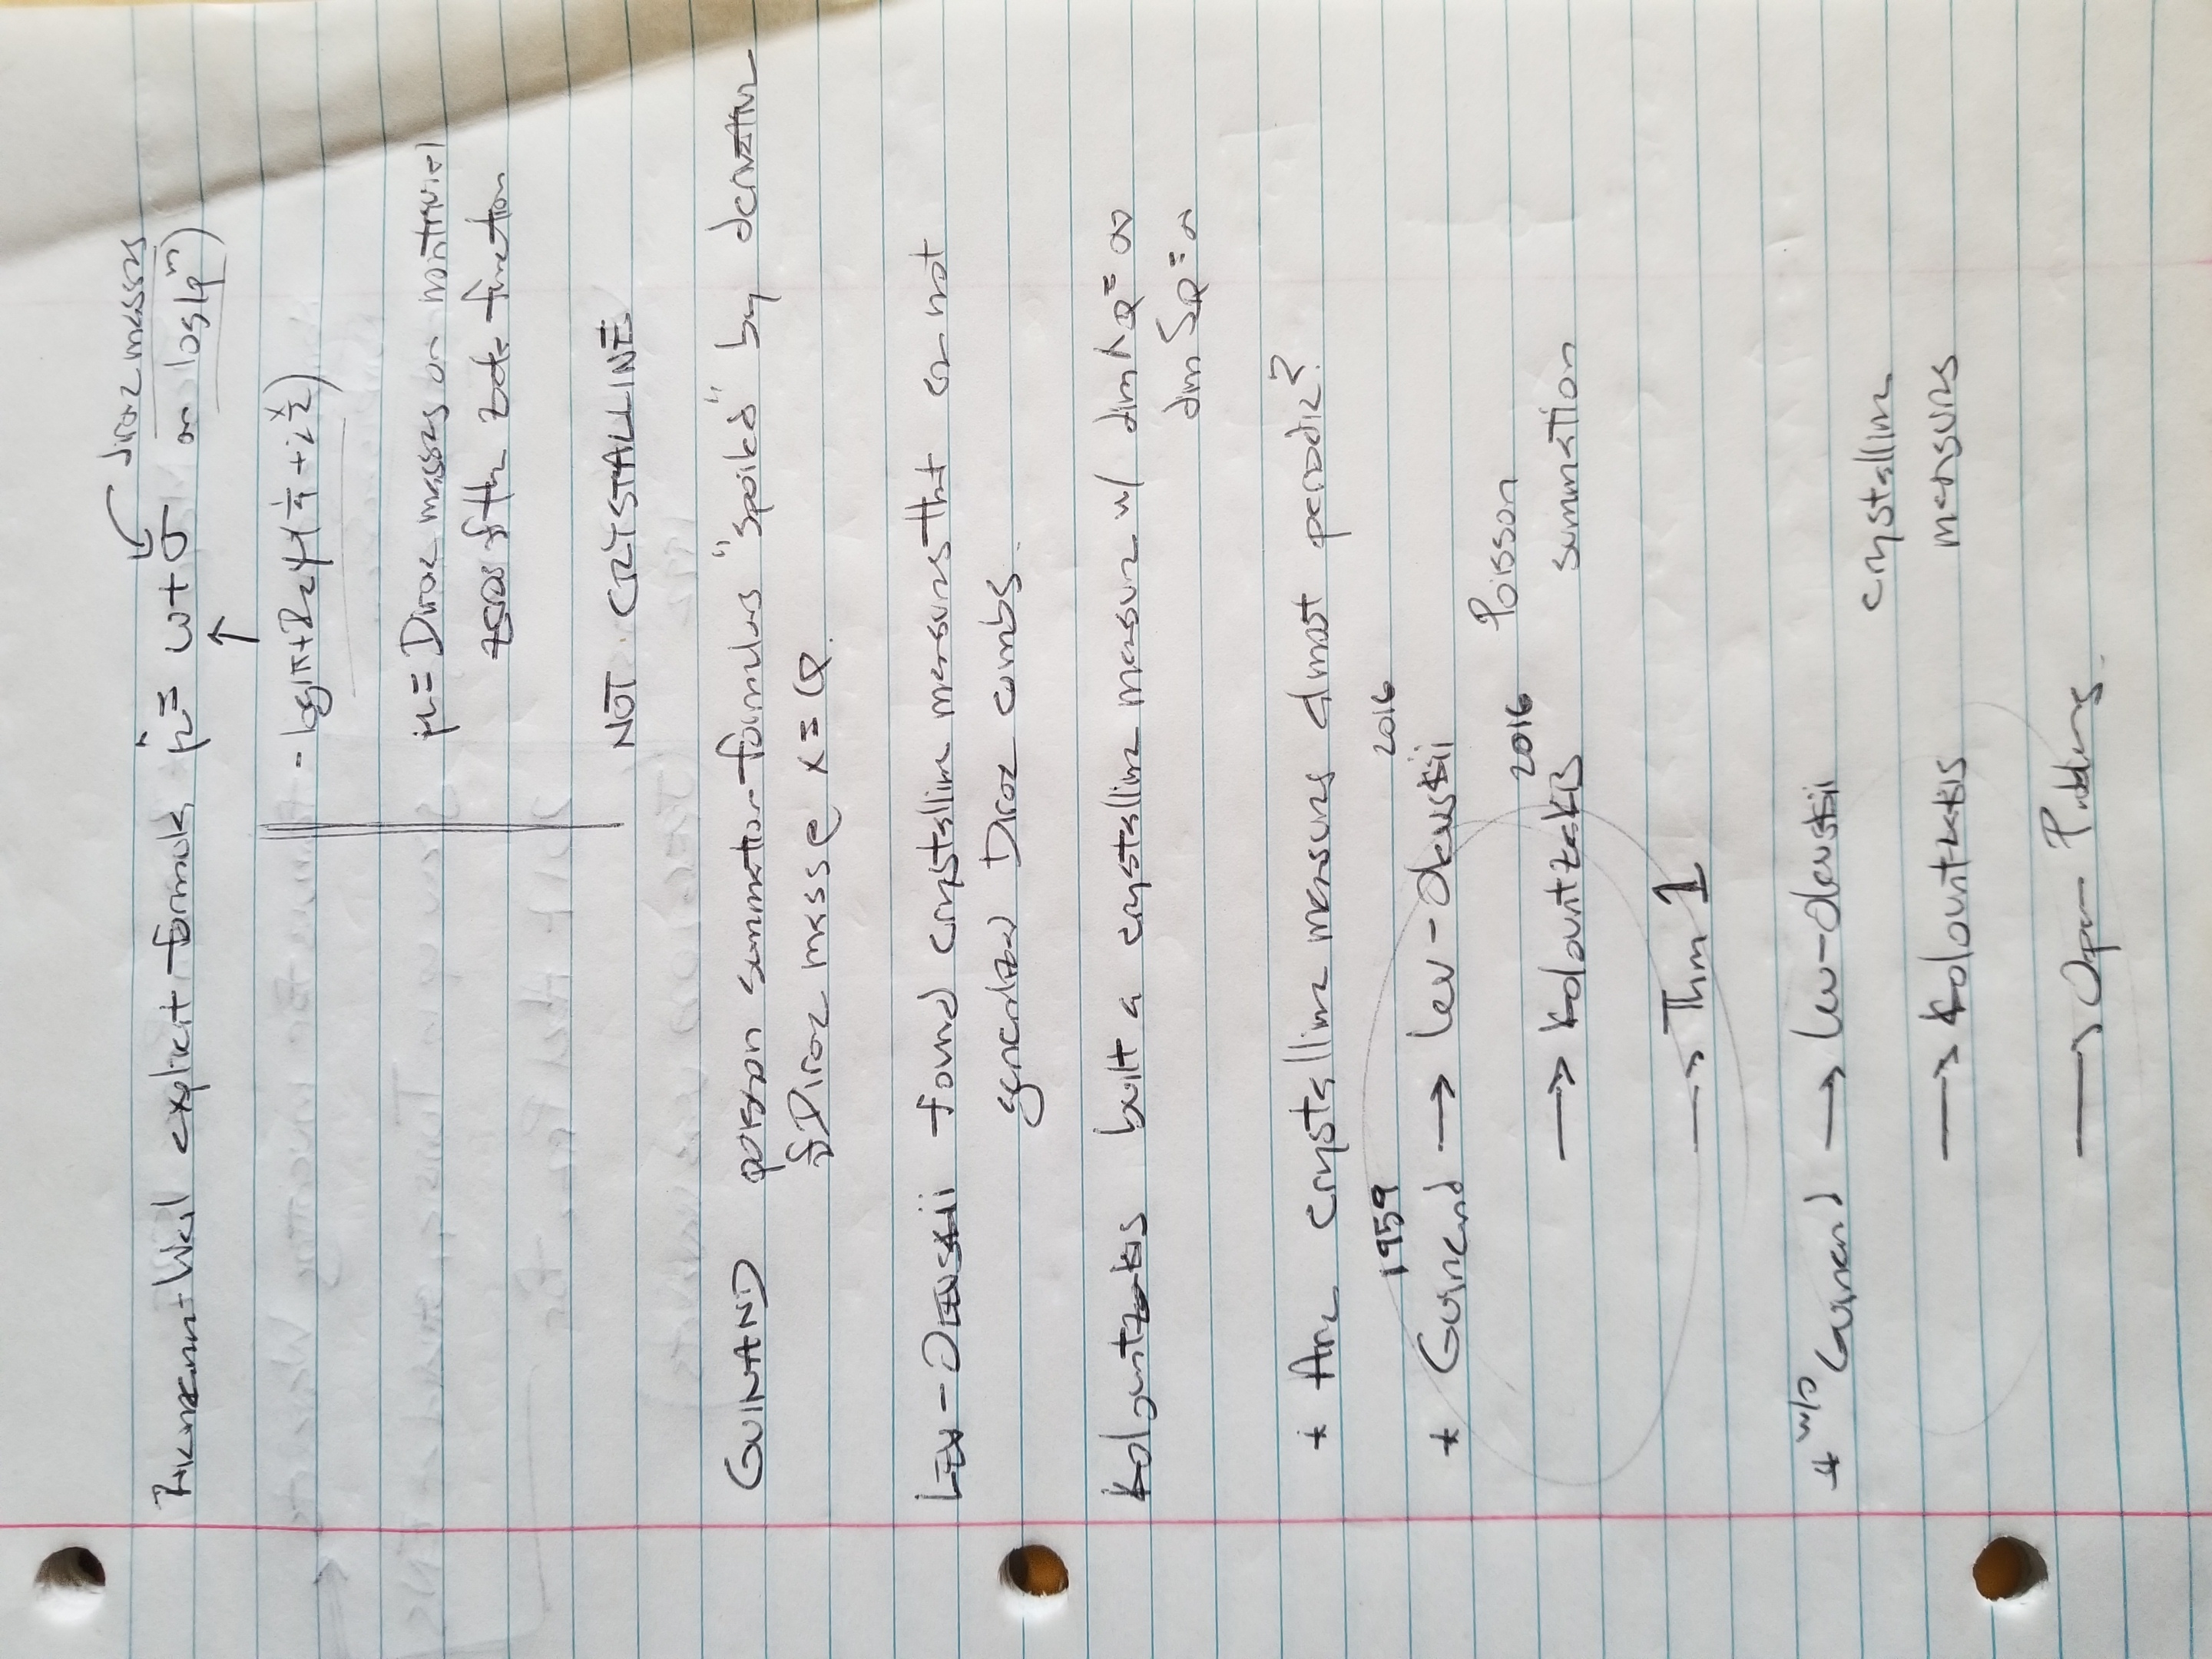 Riemann-Weil explicit formula μ̂ = ω + σ
dirac masses
on log(p^m)
↑
- log π + Re ψ(1/4 + i x/2)
μ = Dirac masses on nontrivial
zeros of the zeta function
NOT CRYSTALLINE
GUINAND poisson summation formulas "spoiled" by derivative
of Dirac mass @ x = 0.
LEV-OLEVSKII found crystalline measures that are not
generalized Dirac combs.
Kolountzakis built a crystalline measure w/ dim Λ_Q = ∞
dim S_Q = ∞
* Are crystalline measures almost periodic?
1959 2016
* Guinand → Lev-Olevskii
2016 Poisson
→ Kolountzakis summation
→ Thm 1
* w/o Guinand → Lev-Olevskii
crystalline
→ Kolountzakis measures
→ Open Problems.